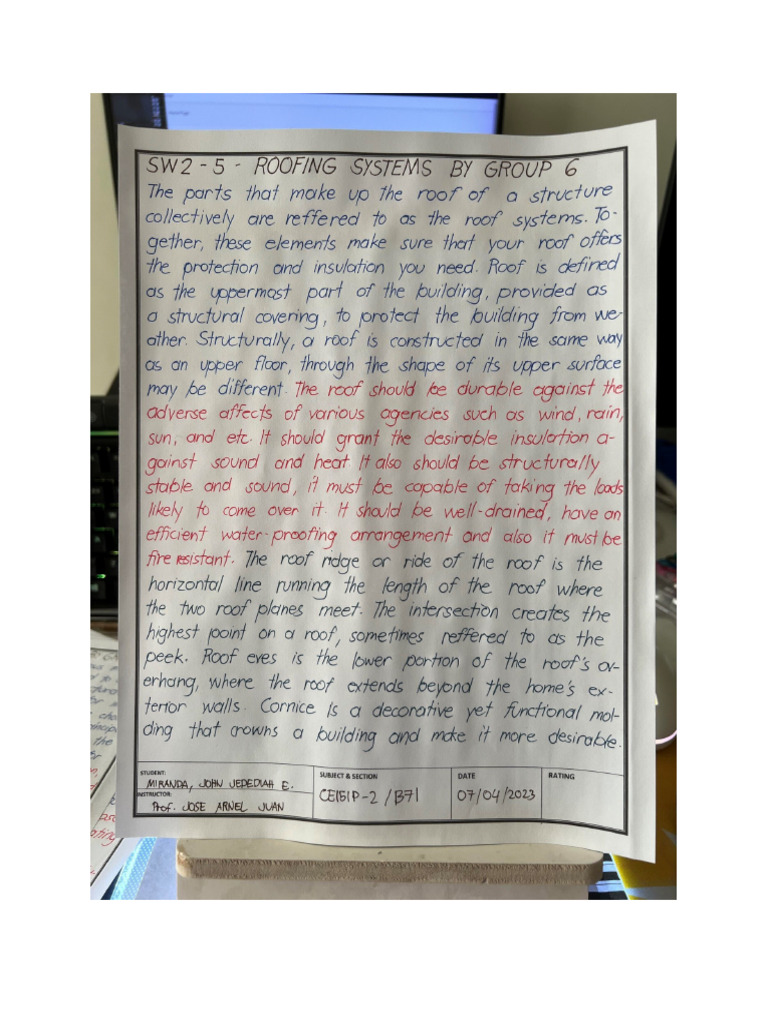 SW2 - 5 - ROOFING SYSTEMS BY GROUP 6
The parts that make up the roof of a structure
collectively are reffered to as the roof systems. To-
gether, these elements make sure that your roof offers
the protection and insulation you need. Roof is defined
as the uppermost part of the building, provided as
a structural covering, to protect the building from we-
ather. Structurally, a roof is constructed in the same way
as an upper floor, through the shape of its upper surface
may be different. The roof should be durable against the
adverse affects of various agencies such as wind, rain,
sun, and etc. It should grant the desirable insulation a-
gainst sound and heat. It also should be structurally
stable and sound, it must be capable of taking the loads
likely to come over it. It should be well-drained, have an
efficient water-proofing arrangement and also it must be
fire resistant. The roof ridge or ride of the roof is the
horizontal line running the length of the roof where
the two roof planes meet. The intersection creates the
highest point on a roof, sometimes reffered to as the
peek. Roof eves is the lower portion of the roof's ov-
erhang, where the roof extends beyond the home's ex-
terior walls. Cornice is a decorative yet functional mol-
ding that crowns a building and make it more desirable.
STUDENT: MIRANDA, JOHN JEDEDIAH E.
INSTRUCTOR: Prof. JOSE ARNEL JUAN
SUBJECT & SECTION
CE151P-2 / B71
DATE
07/04/2023
RATING